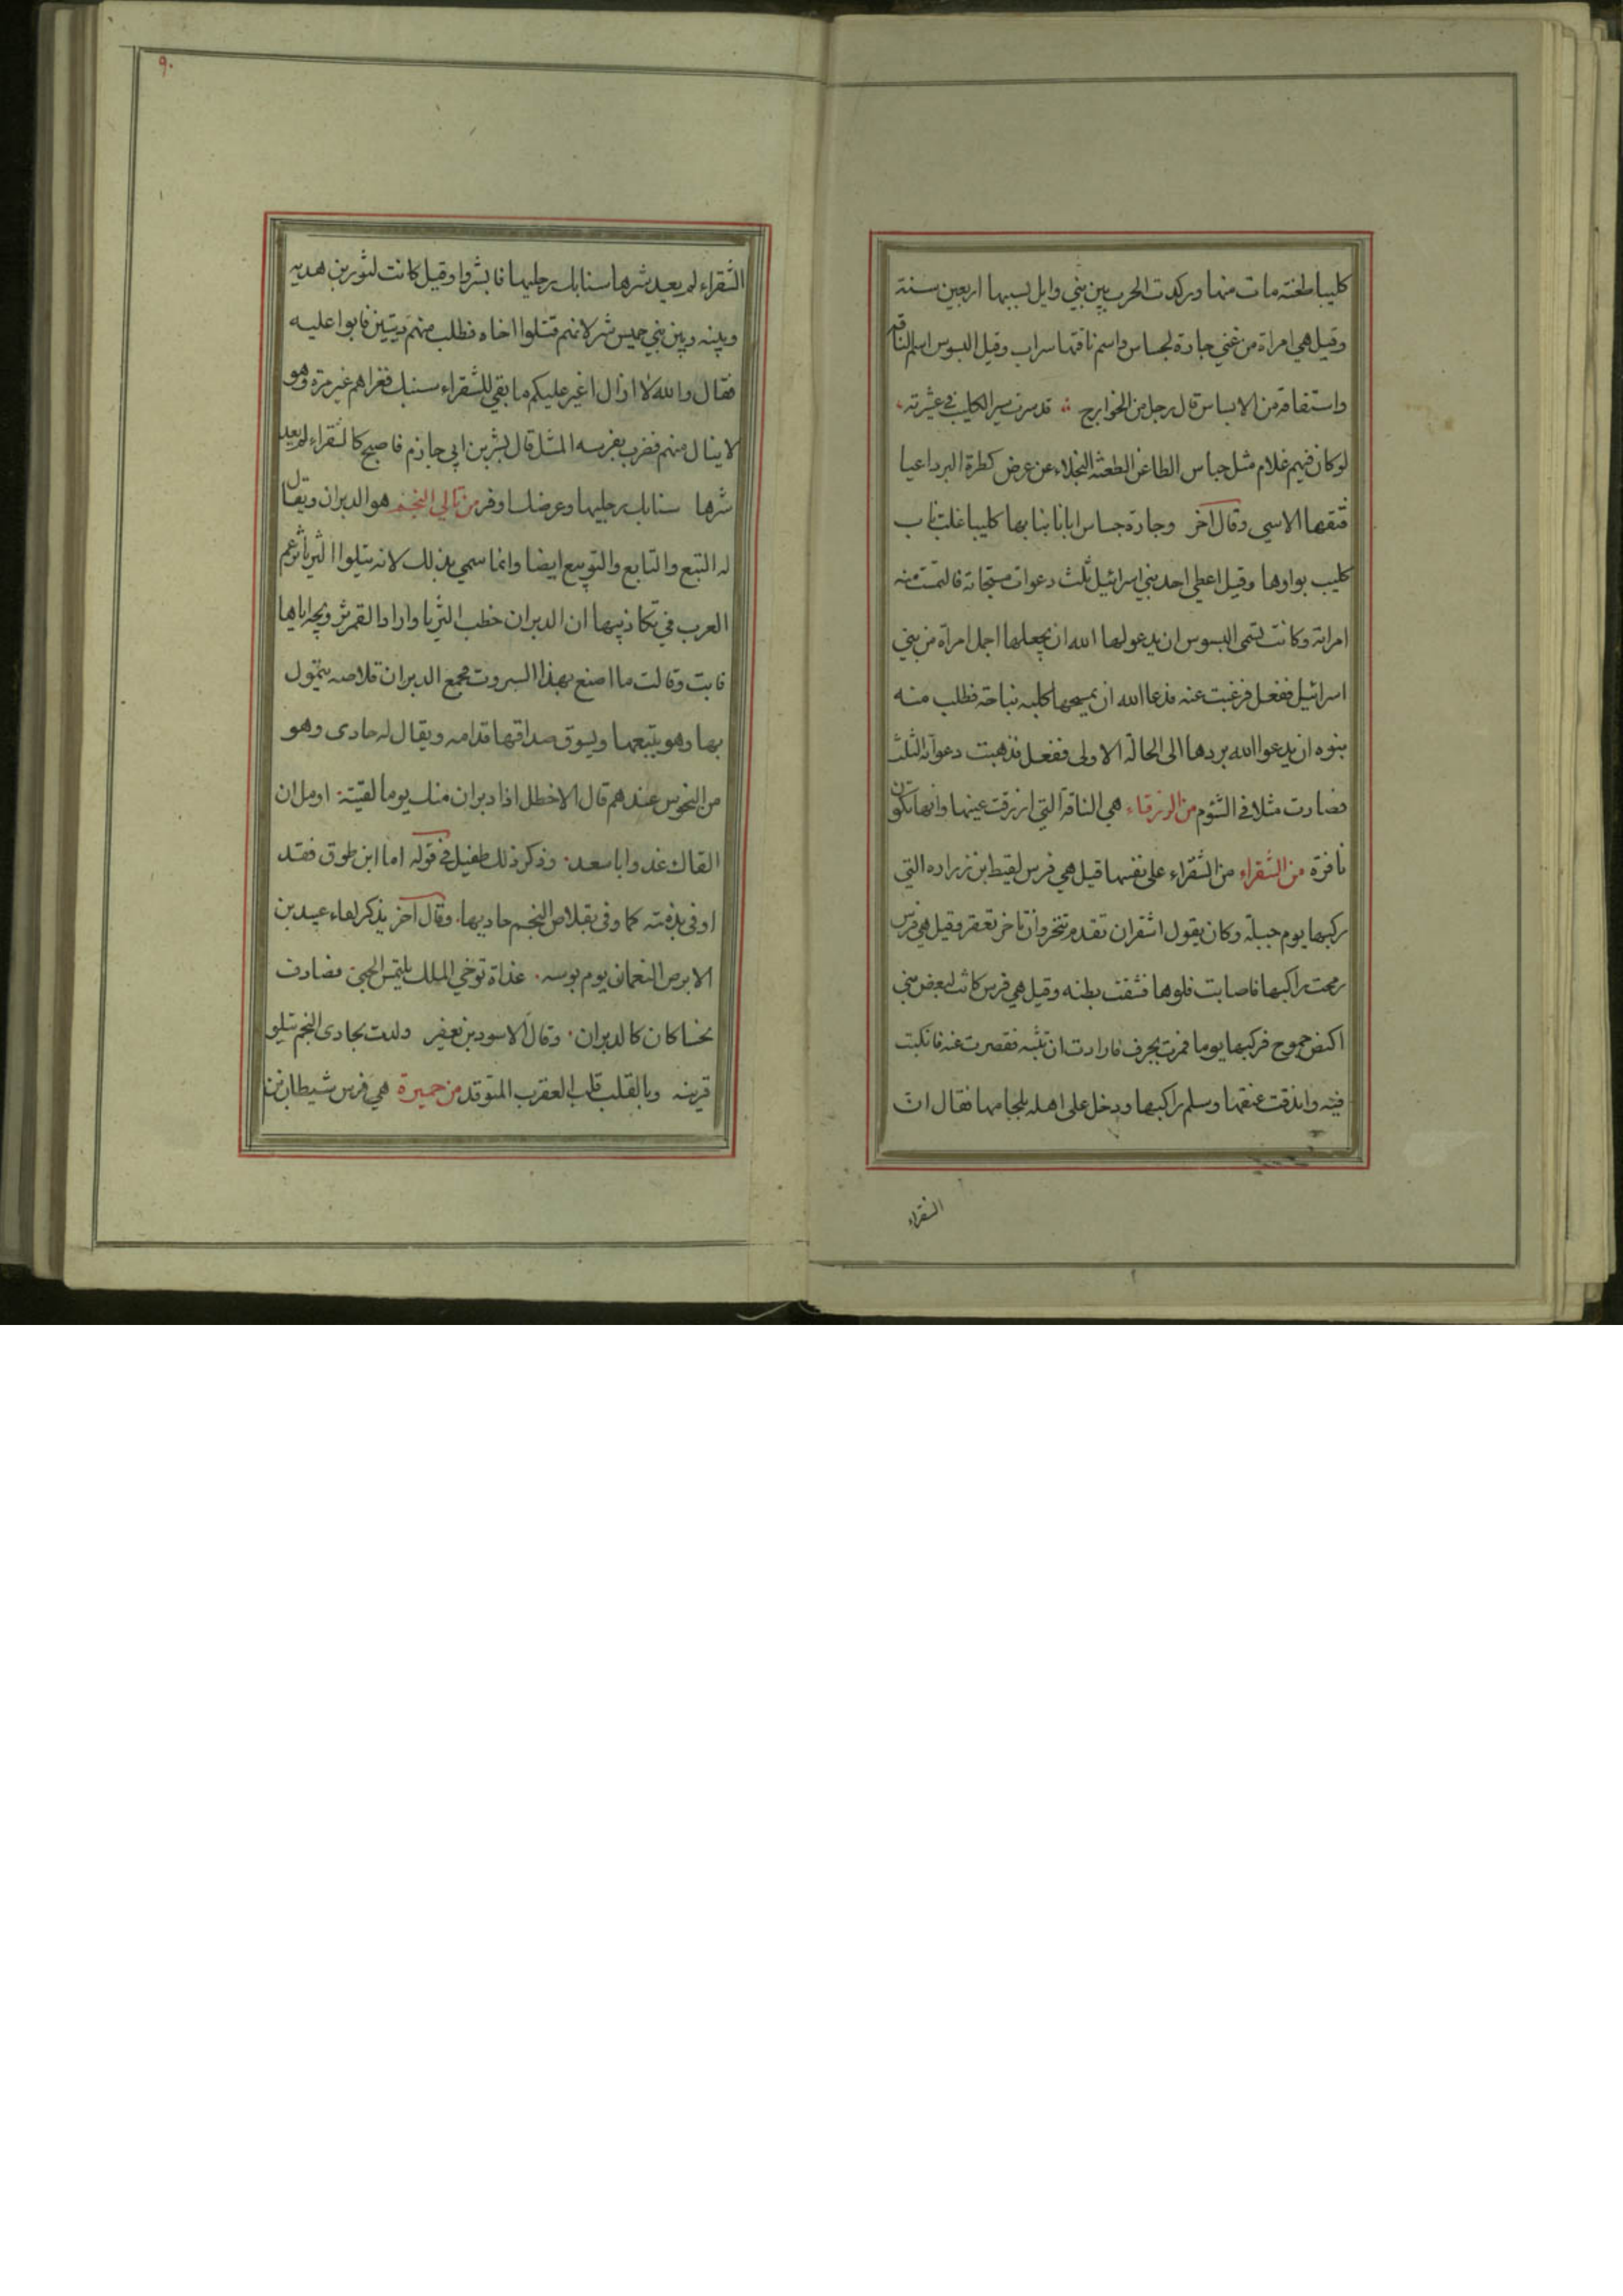 كليبا طخنة مات منها وركدت الحرب بين بني وايل بسببها اربعين سنة
وقيل هي امراة من غني جارة لجساس واسم ناقتها سراب وقيل البسوس اسم الناقه
واستفاقه من الابساس قال رجل من الخوارج قد سرت سير الكليب في عشرته
لو كان فيهم غلام مثل جساس الطاعن الطعنة النجلاء عن عرض كطرة البرد اعيا
فتقها الاسي وقال آخر وجارة جساس ابانا بنابها كليبا غلت ناب
كليب بواوها وقيل اعطي احد بني اسرائيل ثلث دعوات مستجابة فالتمست منه
امراته وكانت تسمى البسوس ان يدعو لها الله ان يجعلها اجمل امراة من بني
اسرائيل ففعل فرغبت عنه فدعا الله ان يمسخها كلبة نباحة فطلب منه
بنوه ان يدعوا الله بردها الى الحالة الاولى ففعل فذهبت دعواته الثلث
فصارت مثلا في الشؤم من الزرقاء هي الناقة التي ازرقت عينها وانها تكون
نافرة من الشقراء من الشقراء على نفسها قيل هي فرس لقيط ابن زراره التي
ركبها يوم جبلة وكان يقول اشقر ان تقدم تنحر وان تاخر تعقر وقيل هي فرس
رمحت راكبها فاصابت فلوها فشقت بطنه وقيل هي فرس كانت لبعض بني
جموح فركبها يوما فمرت بجرف فارادت ان تثبه فقصرت عنه فانكبت
فيه واندقت عنقها وسلم راكبها ودخل على اهله بلجامها فقال ان
الشقراء
٩٠
الشقراء لم يعد شرها سنابك رجليها فابشروا وقيل كانت لثور بن هدبه
وبينه وبين بني حميس شر لانهم قتلوا اخاه فطلب منهم ديتين فابوا عليه
فقال والله لا ازال اغير عليكم ما بقي للشقراء سنبك فغزاهم غير مرة وهو
لا ينال منهم فضرب بفرسه المثل قال بشر بن ابي حازم فاصبح كالشقراء لم يعد
شرها سنابك رجليها وعرضك اوفر من تالي النجم هو الدبران ويقال
له التبع والتابع والتويبع ايضا وانما سمي بذلك لانه يتلوا الثريا تزعم
العرب في تكاذيبها ان الدبران خطب الثريا واراد القمر ان يزوجه اياها
فابت وقالت ما اصنع بهذا السبروت فجمع الدبران قلاصه يتمول
بها وهو يتبعها ويسوق صداقها قدامه ويقال له حادى وهو
من النحوس عندهم قال الاخطل اذا دبران منك يوما لقيته اومل ان
القاك غدوا باسعد وذكر ذلك طفيل في قوله اما ابن طوق فقد
اوفى بذمته كما وفى بقلاص النجم حاديها وقال آخر يذكر لقاء عبيد بن
الابرص النعمان يوم بوسه غداة توخي الملك يلتمس الحبى فصادف
نحسا كان كالدبران وقال الاسود بن يعفر ولدت بحادى النجم يتلو
قرينه وبالقلب قلب العقرب المتوقد من حميرة هي فرس شيطان بن